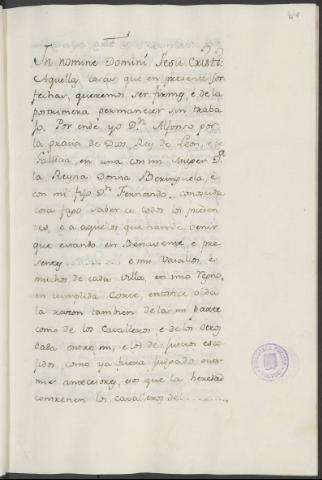 In nomine Domini Jesu Cristi:
Aquellas cosas que en presente son
fechas, queremos ser firmes, è de la
postrimera permanecer sin traba
jo. Por ende yo Dn. Alfonso por
la gracia de Dios, Rey de Leon, è de
Gallicia, en una con mi Muger Da.
la Reyna Donna Berenguela, è
con mi fijo Dn. Fernando, conosuda
cosa fago saber a todos los presen
tes, è a aquelos que han de venir
que estando en Benavente, è pre
sentes ......... è mis Vasallos, è
muchos de cada Villa, en mio Regno,
en cumplida Corte, entonce oida
la razon tambien de la mi parte
como de los Cavalleros, è de los otros
dada entre mi, è los de juicio esco
gidos, como ya fuera juzgado entre
mis antecesores, esto que la heredad
contienen los cavalleros del ......